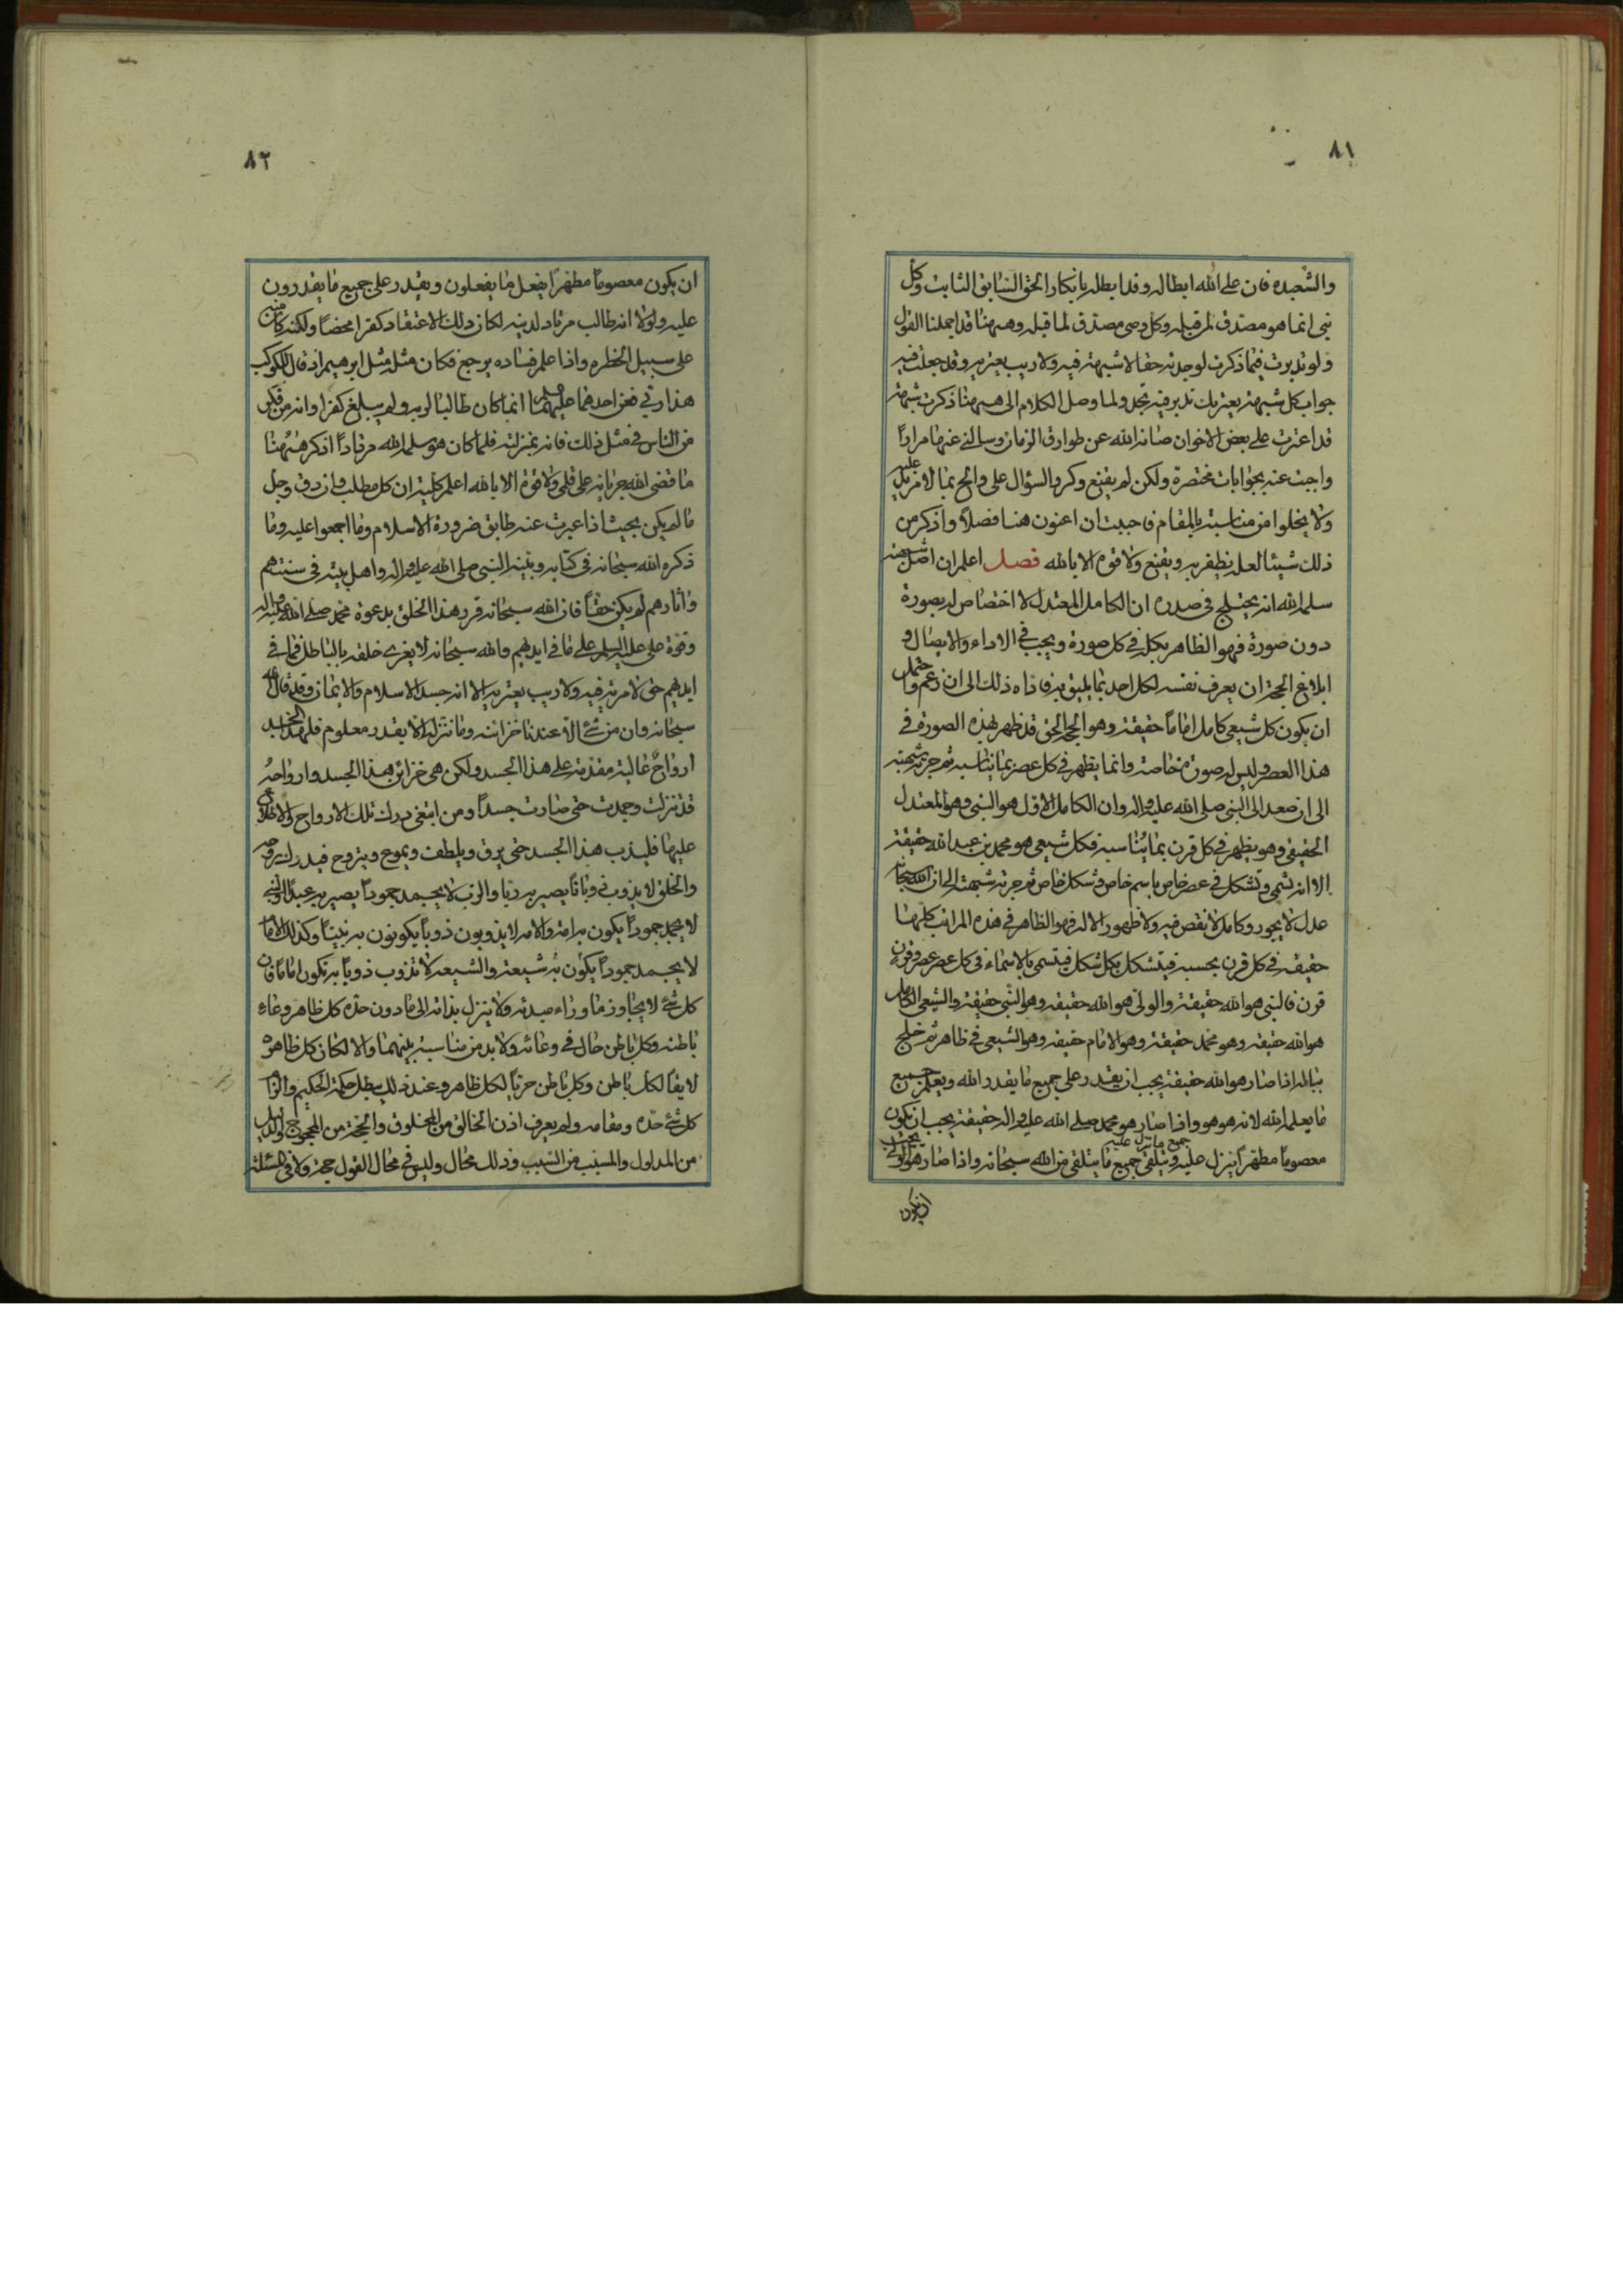 ٨١
والشعبده فان على الله ابطاله وقد ابطله بانكار الحق السابق الثابت وكل
نبى انما هو مصدق لمن قبله وكل وصى مصدق لما قبله وههنا قد اجملنا القول
ولو تدبرت فيما ذكرت لوجدته حقا لا شبهة فيه ولا ريب يعتريه وقد جعلت فيه
جواب كل شبهة يعتريك تدبر فيه تجد ولما وصل الكلام الى ههنا ذكرت شبهة
قد اعترت على بعض الاخوان صانه الله عن طوارق الزمان وسالنى عنها مرارا
واجبت عنه بجوابات مختصرة ولكن لم يقنع وكرر السؤال على والح بما لا مزيد عليه
ولا يخلوا من مناسبة بالمقام فاحببت ان اعنون هنا فصلا واذكر من
ذلك شيئا لعله يظفر به ويقنع ولا قوة الا بالله فصل اعلم ان اصل شبهته
سلمه الله انه يختلج فى صدره ان الكامل المعتدل لا اختصاص له بصورة
دون صورة فهو الظاهر بكله فى كل صورة ويجب فى الاداء والايصال و
ابلاغ الحجة ان يعرف نفسه لكل احد بما يليق به فاداه ذلك الى ان زعم واحتمل
ان يكون كل شيعى كامل اماما حقيقة وهو الحجة الحق قد ظهر بهذه الصورة فى
هذا العصر وليس له صورة خاصة وانما يظهر فى كل عصر بما يناسبه ثم جرته شبهته
الى ان صعد الى النبى صلى الله عليه واله وان الكامل الاول هو النبى وهو المعتدل
الحقيقى وهو يظهر فى كل قرن بما يناسبه فكل شيعى هو محمد بن عبد الله حقيقة
الا انه تسمى وتشكل فى عصر خاص باسم خاص وشكل خاص ثم جرته شبهته الى ان الله سبحانه
عدل لا يجور وكامل لا نقص فيه ولا ظهور الا له فهو الظاهر فى هذه المراتب كلها
حقيقة فى كل قرن بحسبه فيتشكل بكل شكل فيتسمى بالاسماء فى كل عصر عصر وقرن
قرن فالنبى هو الله حقيقة والولى هو الله حقيقة وهو النبى حقيقة والشيعى الكامل
هو الله حقيقة وهو محمد حقيقة وهو الامام حقيقة وهو الشيعى فى ظاهره ثم خلج
بباله اذا صار هو الله حقيقة يجب ان يقدر على جميع ما يقدر الله ويعلم جميع
ما يعلم الله لانه هو هو واذا صار هو محمد صلى الله عليه واله حقيقة يجب ان يكون
معصوما مطهرا ينزل عليه جميع ما نزل عليه ويتلقى جميع ما يتلقى من الله سبحانه واذا صار هو الولى يجب
ان يكون
٨٢
ان يكون معصوما مطهرا يفعل ما يفعلون ويقدر على جميع ما يقدرون
عليه ولولا انه طالب مرتاد لدينه لكان ذلك الاعتقاد كفرا محضا ولكنه كامن
على سبيل الخطره واذا علم فساده يرجع فكان مثله مثل ابرهيم اذ قال للكوكب
هذا ربى فعن احدهما عليهما السلم انما كان طالبا لربه ولم يبلغ كفرا وانه من فكر
من الناس فى مثل ذلك فانه بمنزلته فلما كان هو سلمه الله مرتادا اذكر ههنا
ما قضى الله جريانه على قلمى ولا قوة الا بالله اعلم كلية ان كل مطلب وان دق وجل
ما لم يكن بحيث اذا عبرت عنه طابق ضرورة الاسلام وما اجمعوا عليه وما
ذكره الله سبحانه فى كتابه وبينه النبى صلى الله عليه واله واهل بيته فى سنتهم
واثارهم لم يكن حقا فان الله سبحانه قرر هذا الخلق بدعوة محمد صلى الله عليه واله
وقوة على عليه السلم على ما فى ايديهم والله سبحانه لا يغرى خلقه بالباطل فما فى
ايديهم حق لا مرية فيه ولا ريب يعتريه الا انه جسد الاسلام والايمان وقد قال الله
سبحانه وان من شئ الا عندنا خزائنه وما ننزله الا بقدر معلوم فلهذا الجسد
ارواح عالية مقدمة على هذا الجسد ولكن هى خزائن هذا الجسد وارواحه
قد تنزلت وجمدت حتى صارت جسدا ومن ابتغى درك تلك الارواح والاطلاع
عليها فليذب هذا الجسد حتى يرق ويلطف ويموع ويتروح فيدرك روحه
والخلق لا يذوب ذوبانا يصير به ربا والرب لا يجمد جمودا يصير به عبدا والنبى
لا يجمد جمودا يكون به امة والامة لا يذوبون ذوبا يكونون به نبيا وكذلك الامام
لا يجمد جمودا يكون به شيعة والشيعة لا تذوب ذوبا به تكون اماما فان
كل شئ لا يجاوز ما وراء مبدئه ولا ينزل بذاته الى ما دون حده كل ظاهر وعاء
باطنه وكل باطن حال فى وعائه ولا بد من مناسبة بينهما والا لكان كل ظاهر
لايقا لكل باطن وكل باطن حريا لكل ظاهر وعند ذلك يبطل حكمة الحكيم والزام
كل شئ حده ومقامه ولم يعرف اذن الخالق من المخلوق والحجة من المحجوج والدليل
من المدلول والمسبب من السبب وذلك محال وليس فى محال القول حجة ولا فى المسئلة